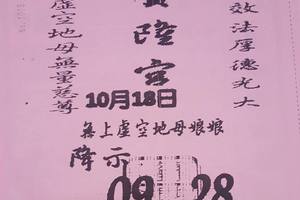 效法厚德光大
宮
虛空地母無量慈尊
10月18日
無上虛空地母娘娘
降示
09 28